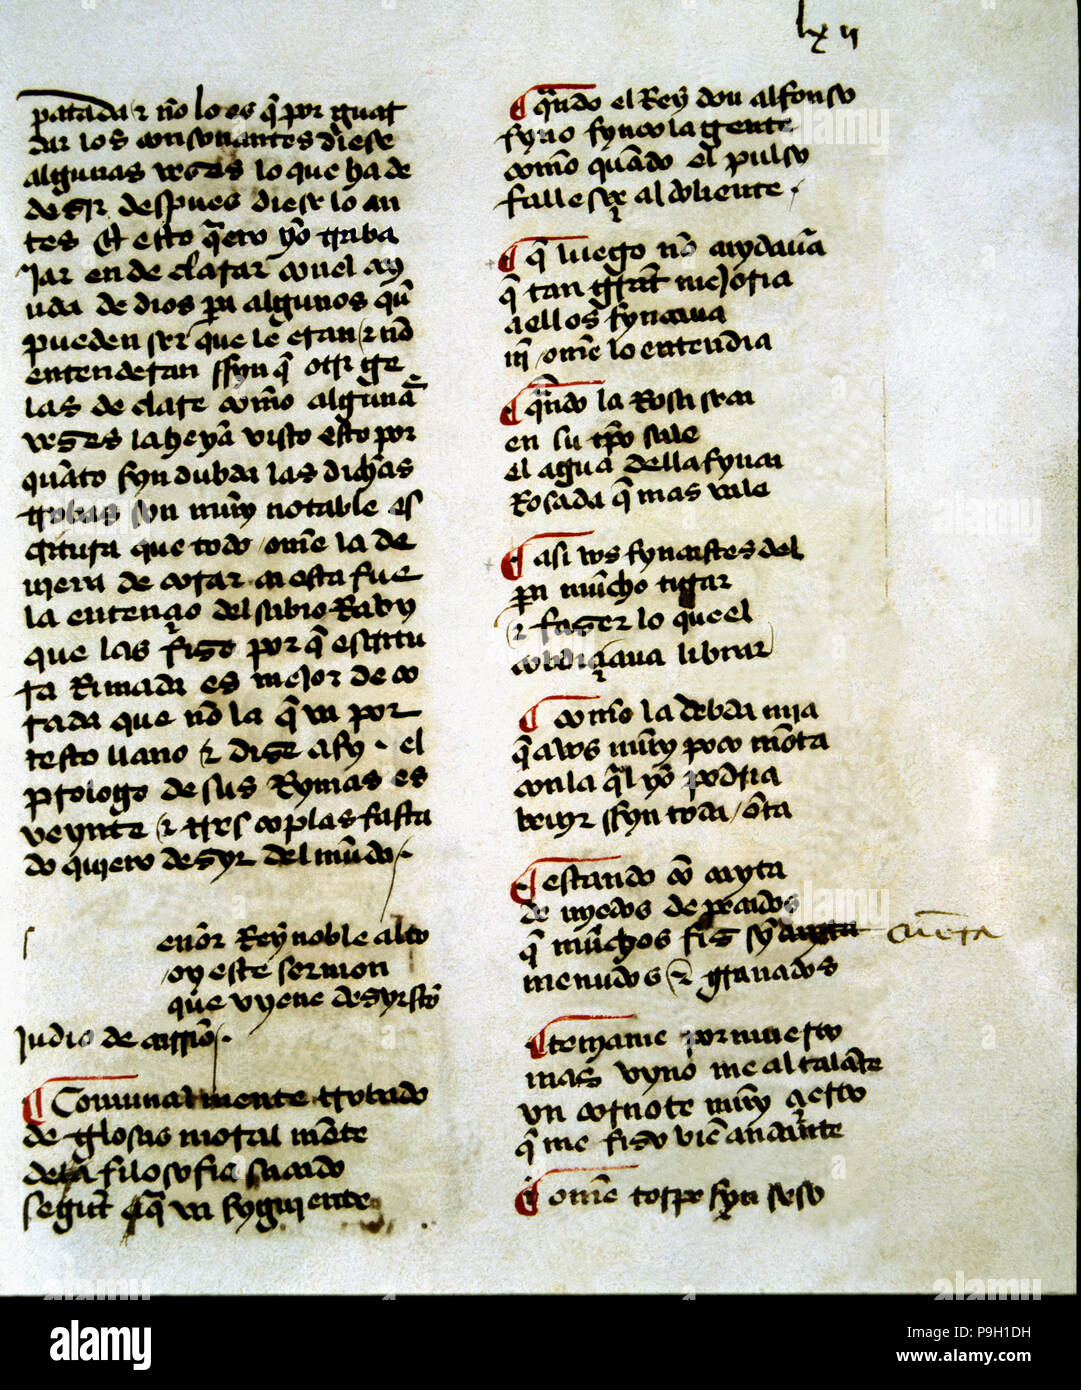 lxii
patada & nõ lo es q̃ por guar
dar los consonantes diese
algunas veses lo que ha de
desir despues diese lo an
tes Et esto q̃ero yo traba
jar en declarar con el ay
uda de dios pa algunos q̃
pueden ser que leeran & nõ
entenderan ssyn q̃ otr ge
las declare comõ algunã
veses la heyã visto esto por
quãto syn dubda las dichas
trobas son muy notable es
critura que todo ome la de
uiera de corar ca esta fue
la entençio del sabio Raby
que las fiso por q̃ escritu
ra Rimada es mejor deco
rada que nõ la q̃ va por
testo llano & dise asy · el
prologo de sus Rymas es
veynte & tres coplas fasta
do quiero desyr del mũdo ·
s
enõr Rey noble alto
oy este sermon
que vyene desyr sto
Judio de carriõ ·
Comunalmente trobado
de glosas moral mẽte
dela filosofia sacado
segunt aq̃ va syguiente
q̃ndo el Rey don alfonso
fyno fynco la gente
comõ quãdo el pulso
fallesçe al doliente ·
q̃ luego nõ cuydauã
q̃ tan grãt mejoria
aellos fyncaua
nĩ ome lo entendia
q̃ndo la Rosa seca
en su tpõ sale
el agua della fynca
Rosada q̃ mas vale
asi vos fyncastes del
pa mũcho turar
& faser lo que el
cobdiçiaua librar
como la debda mia
q̃ a vos muy poco mõta
conla q̃l yo podria
beuyr ssyn toda onta
estando cõ cuyta
de myedos de pecados
q̃ mũchos fis syn
cuẽta
menudos & granados
tomame por muerto
mas vyno me al talãte
vn cornote muy çierto
q̃ me fiso biẽ andãnte
ome torpe syn seso
alamy
alamy
Image ID: P9H1DH
www.alamy.com